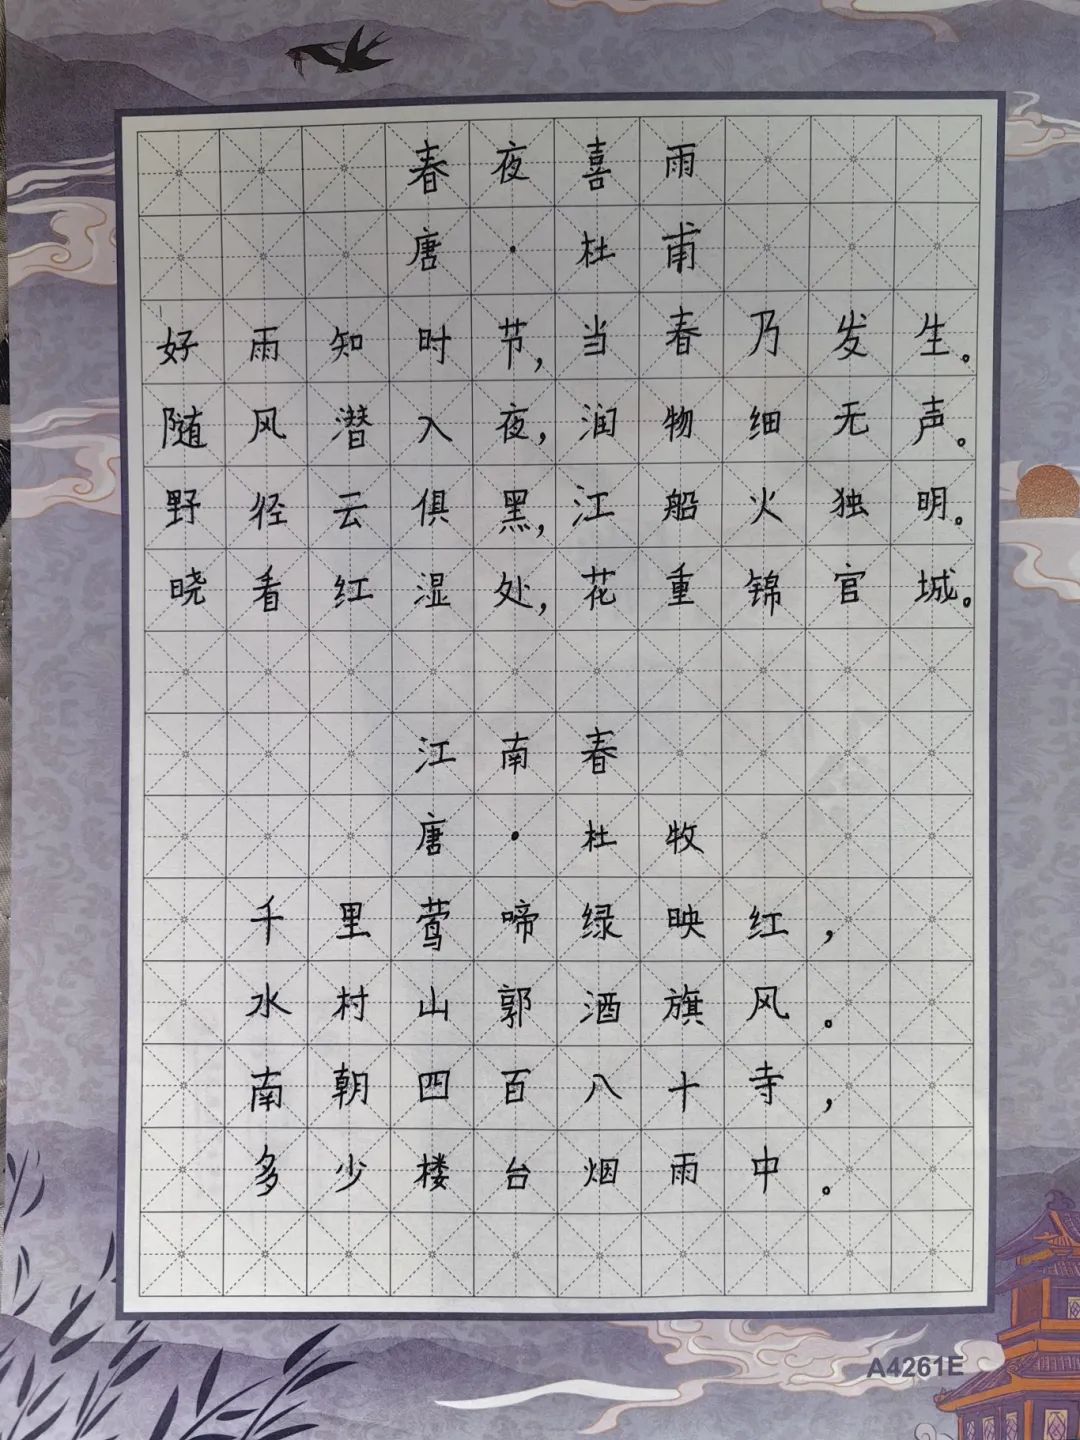 春夜喜雨
唐·杜甫
好雨知时节,当春乃发生。
随风潜入夜,润物细无声。
野径云俱黑,江船火独明。
晓看红湿处,花重锦官城。
江南春
唐·杜牧
千里莺啼绿映红,
水村山郭酒旗风。
南朝四百八十寺,
多少楼台烟雨中。
A4261E